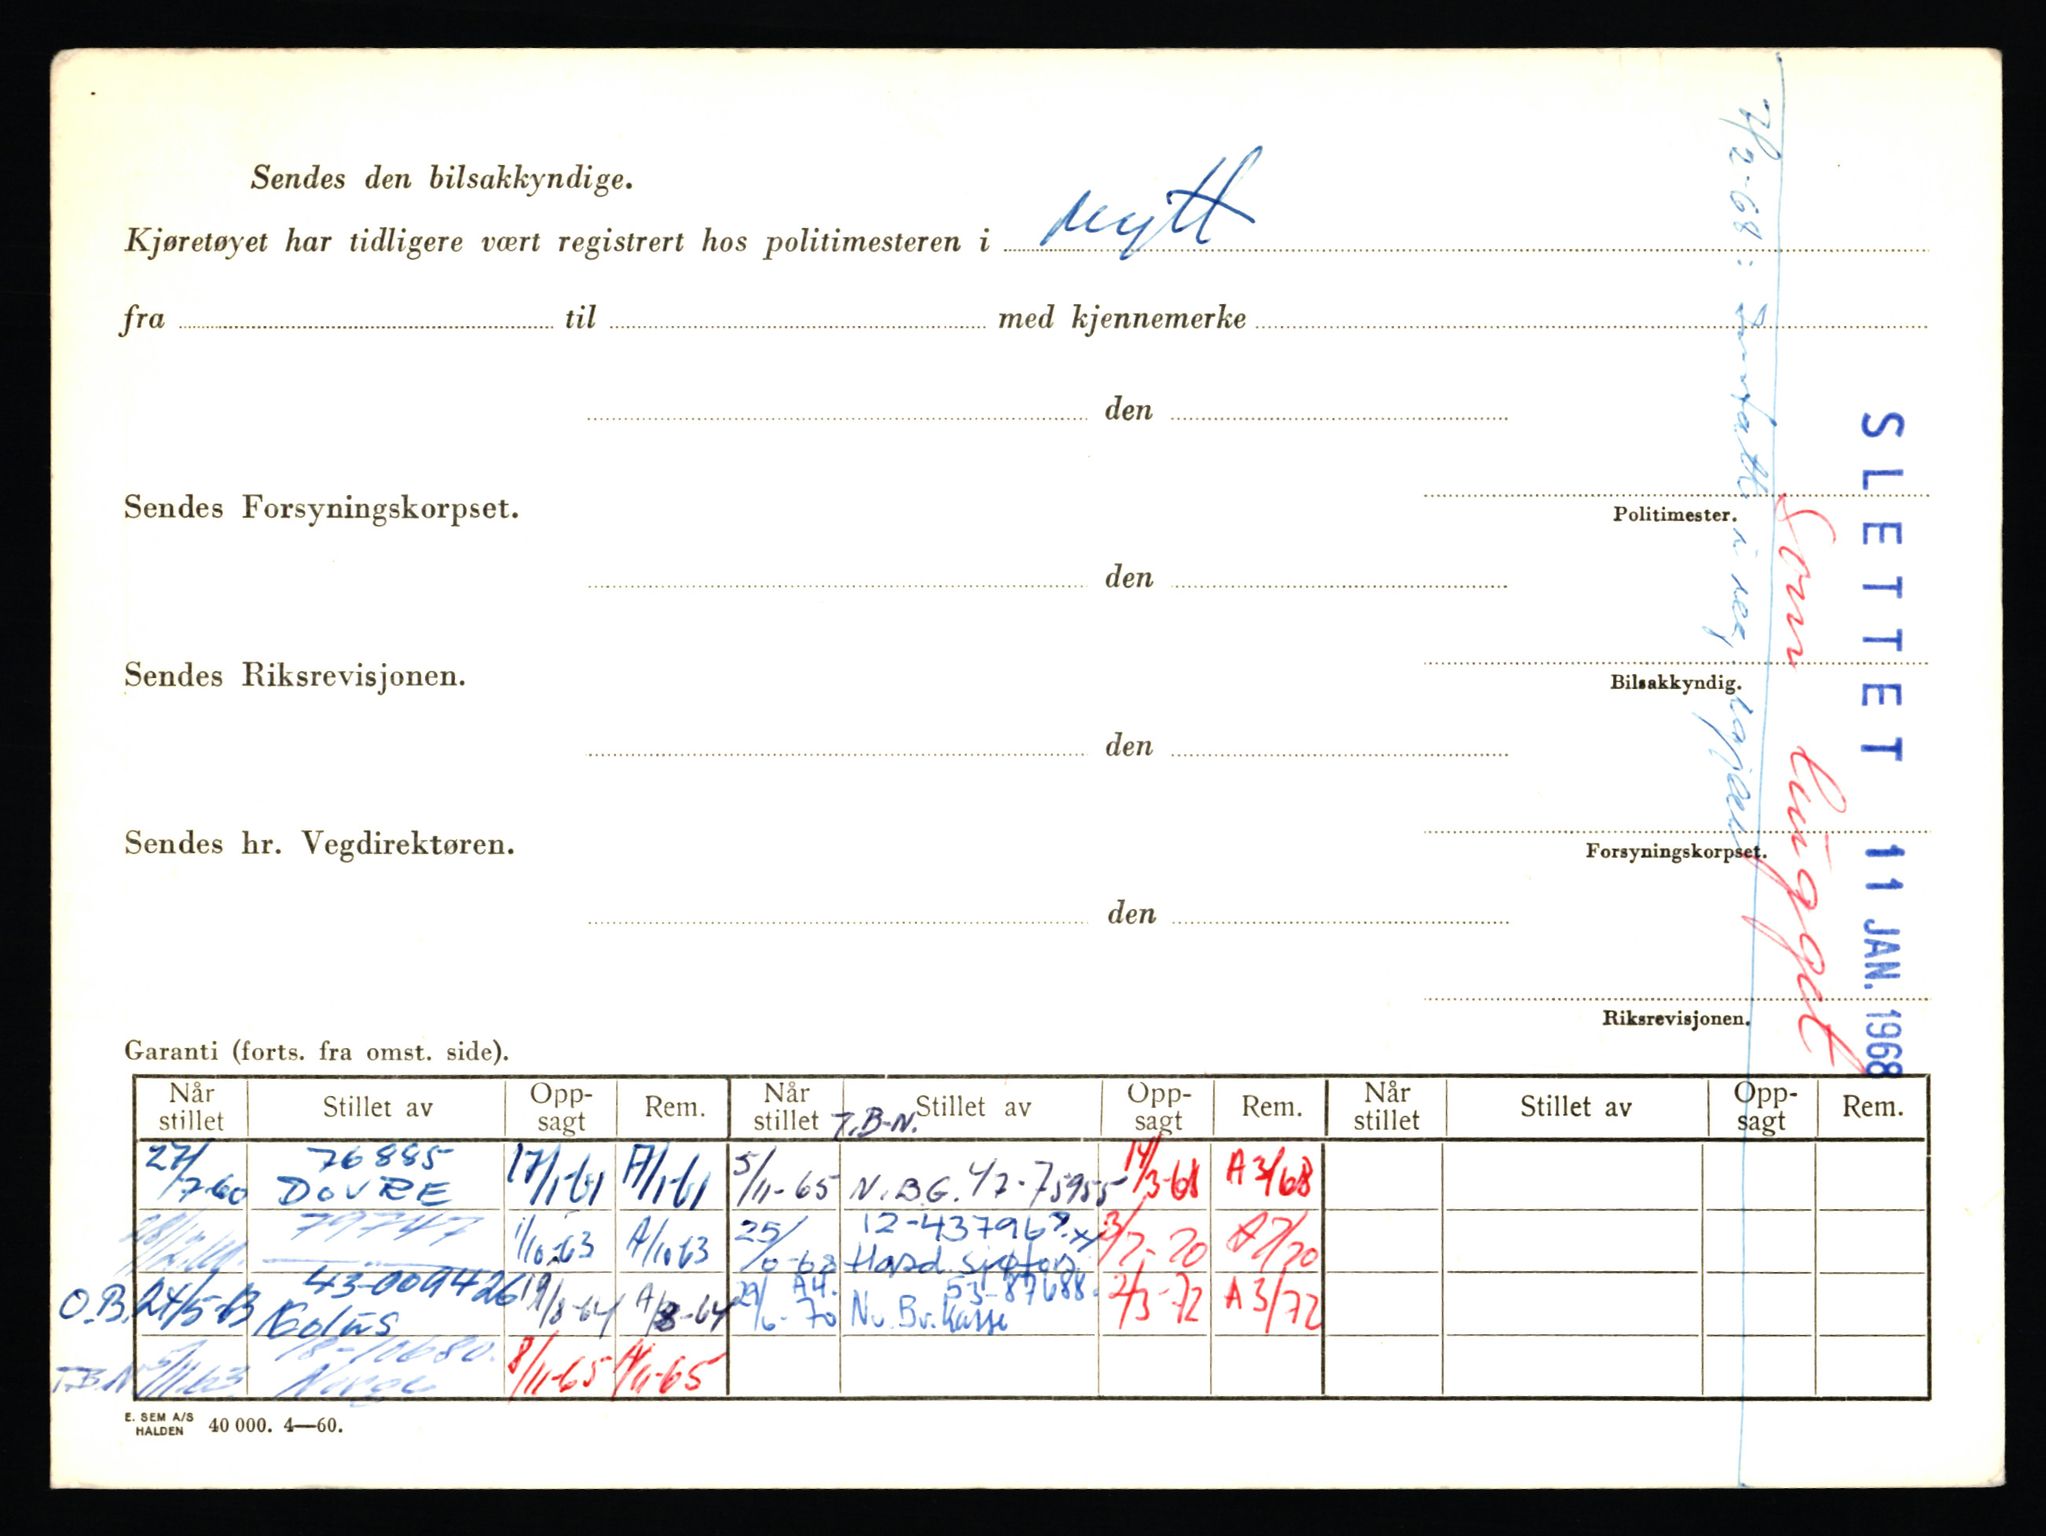 Sendes den bilsakkyndige.
Kjøretøyet har tidligere vært registrert hos politimesteren i nytt
fra til med kjennemerke
den
Sendes Forsyningskorpset.
Politimester.
den
Sendes Riksrevisjonen.
Bilsakkyndig.
den
Sendes hr. Vegdirektøren.
Forsyningskorpset.
den
Riksrevisjonen.
7/2-68: Innsatt i reg.
Som
SLETTET 11 JAN. 1968
Garanti (forts. fra omst. side).
Når stillet Stillet av Opp-sagt Rem. Når stillet Stillet av Opp-sagt Rem. Når stillet Stillet av Opp-sagt Rem.
27/7-60 76885 DOVRE 17/1-61 A/1-61 5/11-65 T.B.N. N.B.G. 47-75955 14/3-68 A 3/68
79747 1/10-63 A/10-63 25/10-68 12-437968 3/2-70 A2/70
O.B. 24/5-63 43-009426 19/8-64 A/8-64 29/6-70 A4. 53-87688. Nv. Br. Kasse 2/3-72 A 3/72
T.B.N. 5/11-63 18-10680. Norge 8/11-65 A/11-65
E. SEM A/S HALDEN 40 000. 4—60.